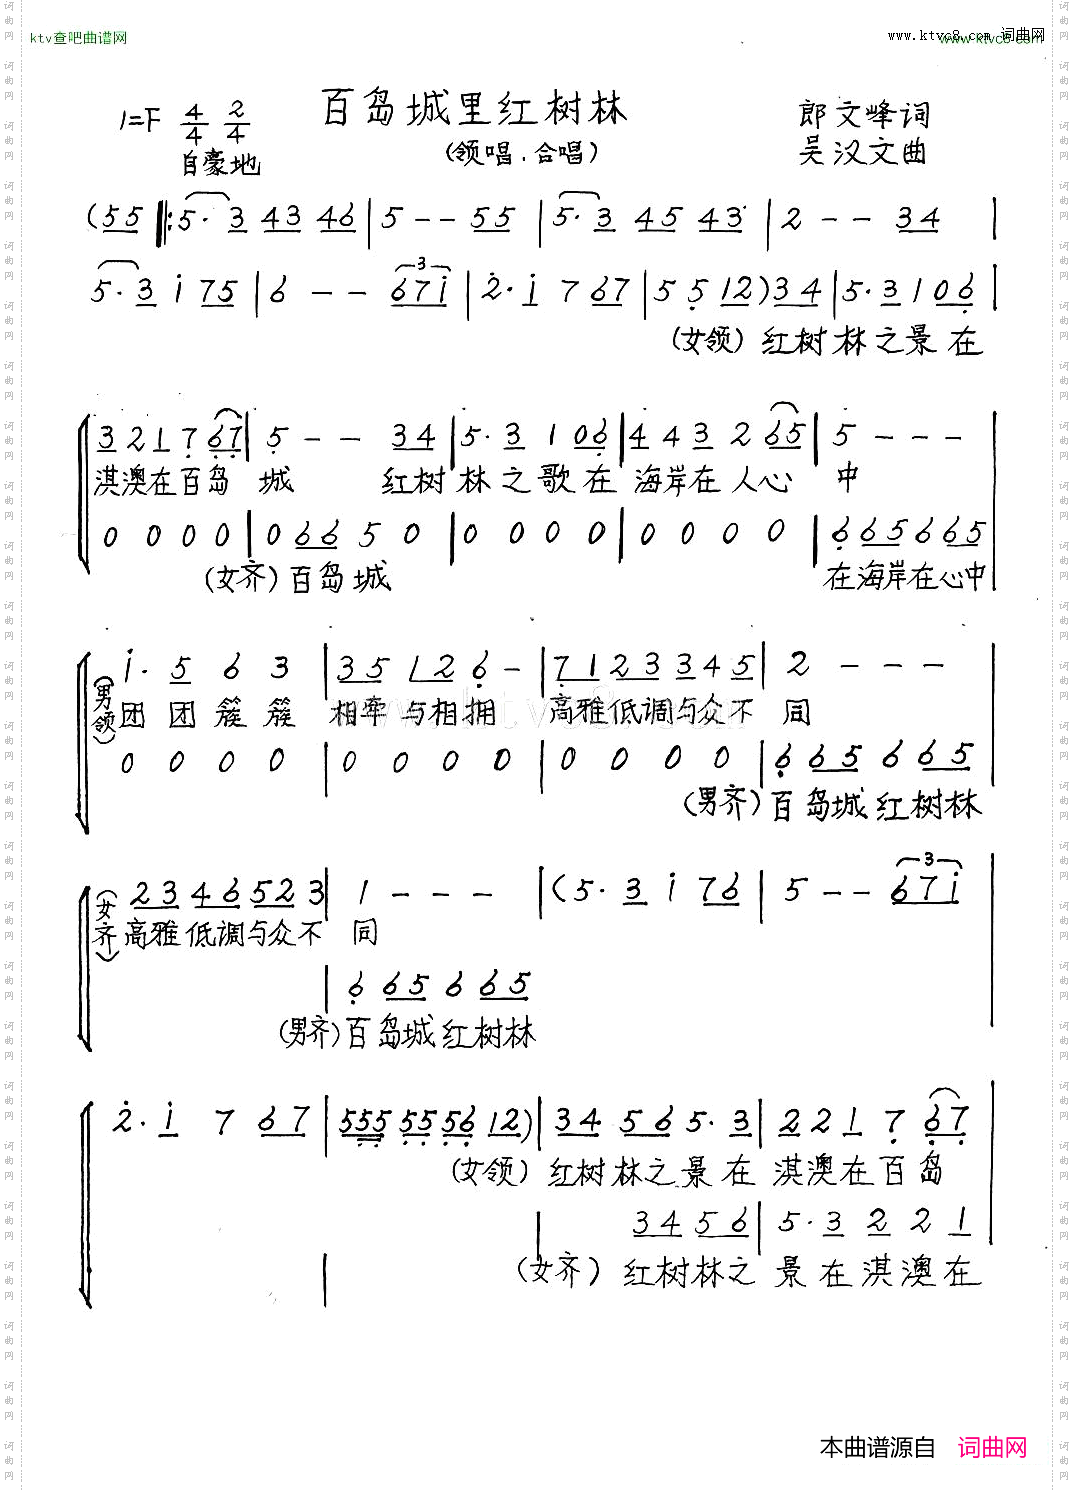 ktv查吧曲谱网
www.ktvc8.com 词曲网
百岛城里红树林
(领唱.合唱)
1=F 4/4 2/4
自豪地
郎文峰词
吴汉文曲
(55 ‖: 5· 3 43 46 | 5 - - 55 | 5· 3 45 43 | 2 - - 34 |
5· 3 i 75 | 6 - - 67i | 2· i 7 67 | 5 5 12) 34 | 5· 3 1 06 |
(女领) 红树林之景在
3 2 1 7 67 | 5 - - 34 | 5· 3 1 06 | 4 4 3 2 65 | 5 - - - |
淇澳在百岛 城 红树林之歌在 海岸在人心 中
0 0 0 0 | 0 66 5 0 | 0 0 0 0 | 0 0 0 0 | 6 65 6 65
(女齐) 百岛城 在海岸在心中
(男领)
i· 5 6 3 | 35 12 6 - | 71 23 34 5 | 2 - - -
团团簇簇 相牵与相拥 高雅低调与众不 同
0 0 0 0 | 0 0 0 0 | 0 0 0 0 | 6 65 6 65
(男齐) 百岛城红树林
(女齐)
23 46 52 3 | 1 - - - | (5· 3 i 76 | 5 - - 67i |
高雅低调与众不 同
| 6 65 6 65
(男齐) 百岛城红树林
2· i 7 67 | 555 55 56 12) | 34 56 5· 3 | 2 2 1 7 67 |
(女领) 红树林之景在 淇澳在百岛
| 34 56 | 5· 3 2 2 1
(女齐) 红树林之 景在淇澳在
www.ktvc8.com
本曲谱源自 词曲网